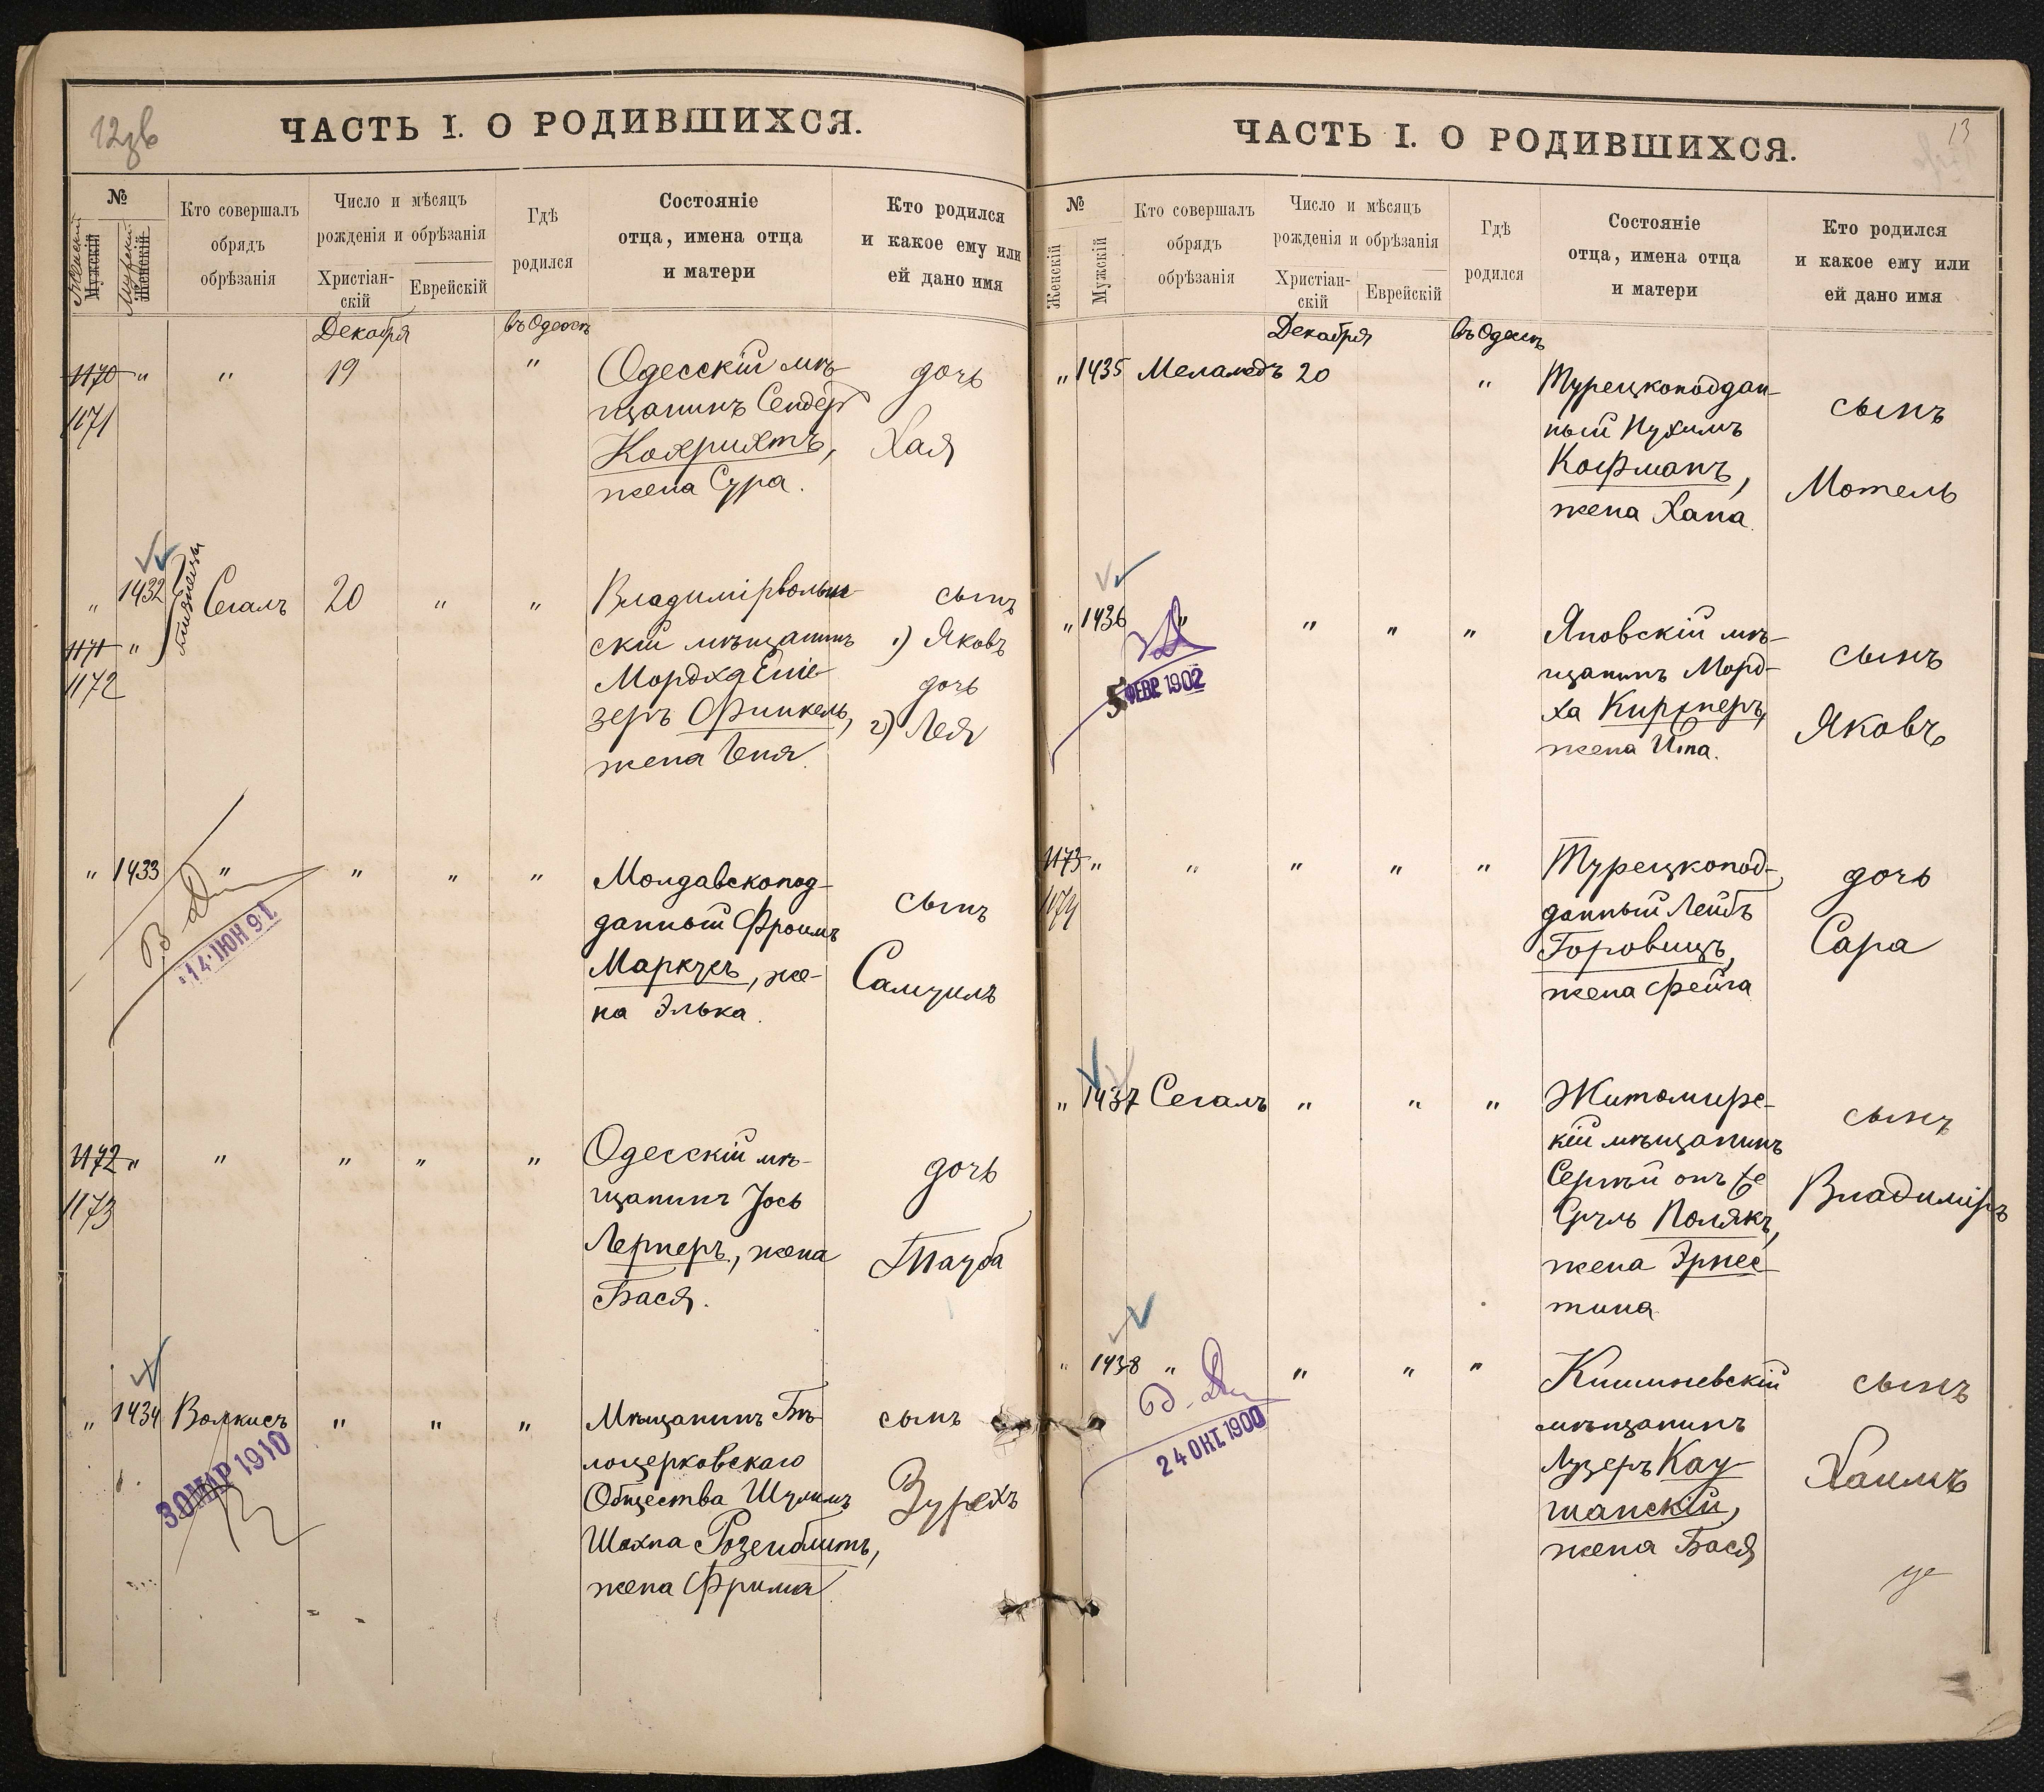 12 зв
ЧАСТЬ I. О РОДИВШИХСЯ.
№
Женскій
Мужскій
Мужской
Женскій
Кто совершалъ
обрядъ
обрѣзанія
Число и мѣсяцъ
рожденія и обрѣзанія
Христіан-
скій
Еврейскій
Гдѣ
родился
Состояніе
отца, имена отца
и матери
Кто родился
и какое ему или
ей дано имя
Декабря
въ Одессѣ
1170 " " 19 "
1171
Одесскій мѣ-
щанинъ Сендер
жена Сура.
дочь
Хая
" 1432 близнецы Сегалъ 20 " "
1171 "
1172
Владимірволын-
скій мѣщанинъ
Мордха Еліе-
зеръ Финкель,
жена Геня.
сынъ
1) Яковъ
дочь
2) Лея
" 1433 " " " "
14 ІЮН 91
Молдавскопод-
данный Фроимъ
Маркусъ, же-
на Элька.
сынъ
Самуилъ
1172 " " " " "
1173
Одесскій мѣ-
щанинъ Іось
Лернеръ, жена
Бася.
дочь
Тауба
" 1434 Волкисъ " " "
30 МАР 1910
Мѣщанинъ Бѣ-
лоцерковскаго
Общества Шулимъ
Шахна Розенблитъ,
жена Фрима
сынъ
Зурехъ
13
ЧАСТЬ I. О РОДИВШИХСЯ.
№
Женскій
Мужскій
Кто совершалъ
обрядъ
обрѣзанія
Число и мѣсяцъ
рожденія и обрѣзанія
Христіан-
скій
Еврейскій
Гдѣ
родился
Состояніе
отца, имена отца
и матери
Кто родился
и какое ему или
ей дано имя
Декабря
въ Одессѣ
" 1435 Меламедъ 20 "
Турецкоподдан-
ный Нухимъ
Кофманъ,
жена Хана.
сынъ
Мотель
" 1436 " " " "
5 ФЕВР. 1902
Яновскій мѣ-
щанинъ Морд-
ха Киржнеръ,
жена Ита.
сынъ
Яковъ
1173 " " " " "
1174
Турецкопод-
данный Лейбъ
Горовицъ,
жена Фейга
дочь
Сара
" 1437 Сегалъ " " "
Житомирс-
кій мѣщанинъ
Сергѣй онъ же
Сруль Полякъ,
жена Эрнес-
тина
сынъ
Владиміръ
" 1438 " " " "
24 ОКТ 1900
Кишиневскій
мѣщанинъ
Лузеръ Кау-
шанскій,
жена Бася
сынъ
Хаимъ